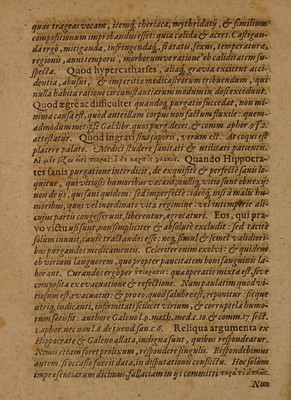 quas trageas vocant, itemq; theriaca, mythridatij, & similium
compositionum improbandi esset: quia calida & acres. Castigan-
da ergò, mitiganda, infringendaq;, si ætatis, sexus, temperatura,
regionis, anni temporis, morborumve ratione ob caliditatem su-
specta. Quod hypercatharses, aliaq; gravia excitent acci-
dentia, abusui, & imperitiæ medicastrorum tribuendum, qui
nulla habita ratione circumstantiarum modum in dosi excedunt.
Quod ægrè ac difficulter quandoq; purgatio succedat, non mi-
nima causa est, quòd anteillam corpus non factum fluxile: quem-
admodum met ipse Galli lib. quos purg. decet, & comm. aphor. 9.
attestatur. Quod ingrati sint saporis, verum est. At cuique est
placere palato. Medici studere sanitati & utilitati patientis.
Quando Hippocra-
tes sanis purgatione interdicit, de exquisitè & perfectè sanis lo-
quitur, qui vitiosis humoribus vacant quaillis, vitio sunt obnoxij:
non de ijs, qui sani quidem: sed imperfectè: videoq;, quia malis hu-
moribus, quos vel inordinato vita regimine: vel intemperie ali-
cujus partis congesserunt, liberentur, ægrotaturi. Eos, qui pra-
vo victu usi sunt, non simpliciter & absolutè excludit: sed tacitè
solum innuit, cautè tractandi esse: nec, simul & semel validiori-
bus purgandos medicamentis. Celeriter enim exolvi: & quidem
ob virium languorem, quo propter paucitatem boni sanguinis la-
borant. Curandos ergò per qua operatio mixta est, sive
composita ex evacuatione & refectione. Nam paulatim quod vi-
tiosum est, evacuatur: & pro eo, quod salubre est, reponitur: sicque
utriq; indicanti, infirmitati scilicet virium, & corruptela humo-
rum satisfit: authore Galeno l. 9. math. med. c. 10. & comm. 17 sect.
2. aphor. nec non l. 6. de tuend. san. c. 6. Reliqua argumenta ex
Hippocrate & Galeno allata, indigna sunt, quibus respondeatur.
Nimis etiam foret prolixum, respondere singulis. Respondebimus
autem, si occasio fuerit data, in disputationis conflictu. Hoc solum
in præsentiarum dicimus, fallaciam in ijs committi
Nam